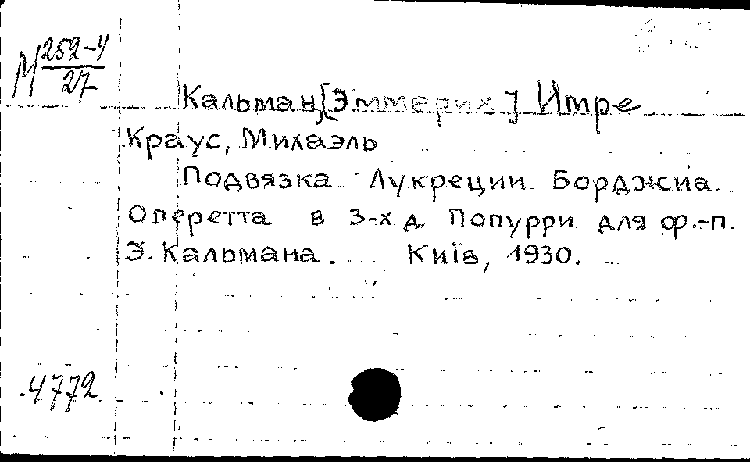 М 252-4
27
Кальман, [Эммерих] Имре
Краус, Михаэль
Подвязка Лукреции Борджиа.
Оперетта в 3-х д. Попурри для ф.-п.
Э. Кальмана. Київ, 1930.
4772